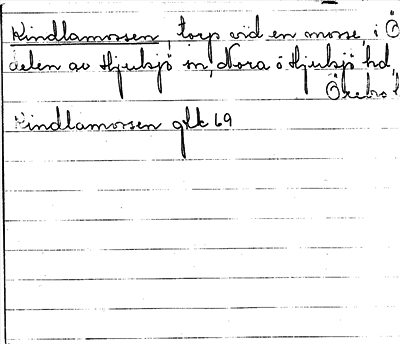 Kindlamossen, torp vid en mosse, i Ö
delen av Hjulsjö sn, Nora o Hjulsjö hd,
Örebro l
Kindlamossen glk 69